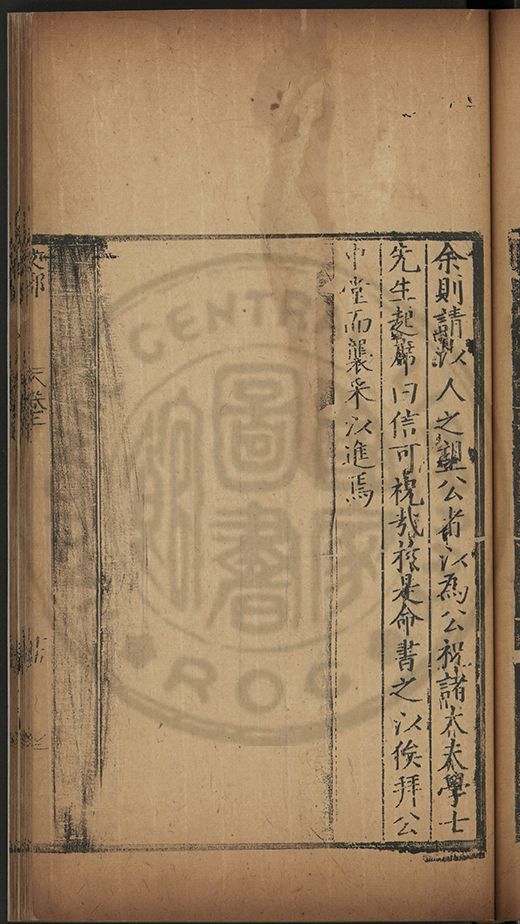 余則請以人之望公者以為公祝諸大夫學士
先生起席曰信可祝哉於是命書之以俟拜公
中堂而襲采以進焉
CENTRAL
圖書
ROC